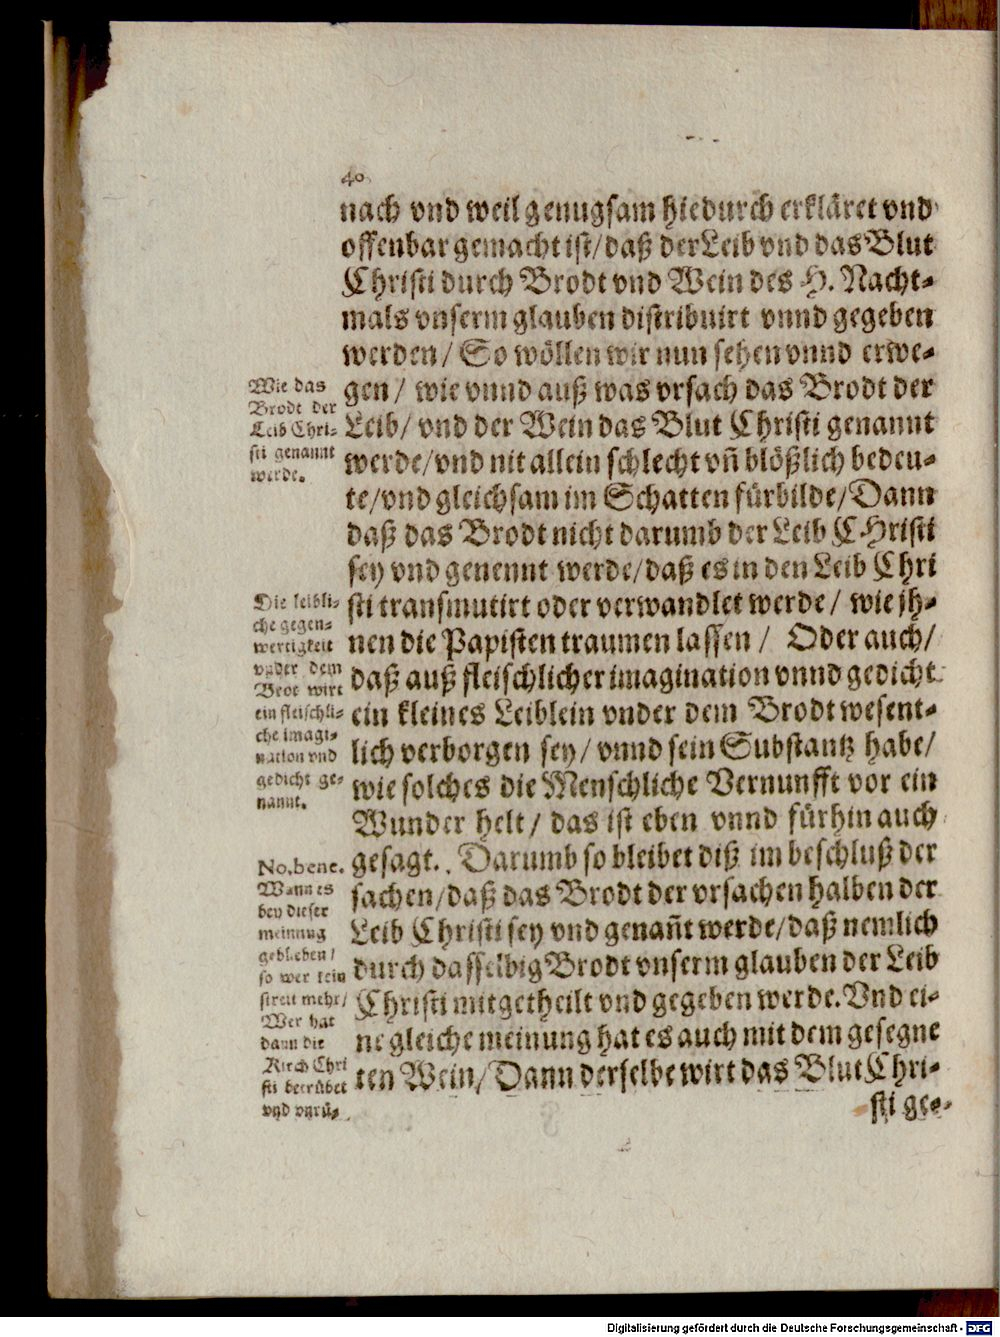 40
nach vnd weil genugsam hiedurch erkläret vnd
offenbar gemacht ist/ daß der Leib vnd das Blut
Christi durch Brodt vnd Wein des H. Nacht-
mals vnserm glauben distribuirt vnnd gegeben
werden/ So wöllen wir nun sehen vnnd erwe-
gen/ wie vnnd auß was vrsach das Brodt der
Leib/ vnd der Wein das Blut Christi genannt
werde/ vnd nit allein schlecht vñ blößlich bedeu-
te/ vnd gleichsam im Schatten fürbilde/ Dann
daß das Brodt nicht darumb der Leib CHristi
sey vnd genennt werde/ daß es in den Leib Chri
sti transmutirt oder verwandlet werde/ wie jh-
nen die Papisten traumen lassen/ Oder auch/
daß auß fleischlicher imagination vnnd gedicht
ein kleines Leiblein vnder dem Brodt wesent-
lich verborgen sey/ vnnd sein Substantz habe/
wie solches die Menschliche Vernunfft vor ein
Wunder helt/ das ist eben vnnd fürhin auch
gesagt. Darumb so bleibet diß im beschluß der
sachen/ daß das Brodt der vrsachen halben der
Leib Christi sey vnd genañt werde/ daß nemlich
durch dasselbig Brodt vnserm glauben der Leib
Christi mitgetheilt vnd gegeben werde. Vnd ei-
ne gleiche meinung hat es auch mit dem gesegne
ten Wein/ Dann derselbe wirt das Blut Chri-
sti ge-
Wie das
Brodt der
Leib Chri-
sti genannt
werde.
Die leibli-
che gegen-
wertigkeit
vnder dem
Brot wirt
ein fleischli-
che imagi-
nation vnd
gedicht ge-
nannt.
No. bene.
Wann es
bey dieser
meinung
geblieben/
so wer kein
streit mehr/
Wer hat
dann die
Kirch Chri
sti betrübet
vnd vnrü-
Digitalisierung gefördert durch die Deutsche Forschungsgemeinschaft - DFG